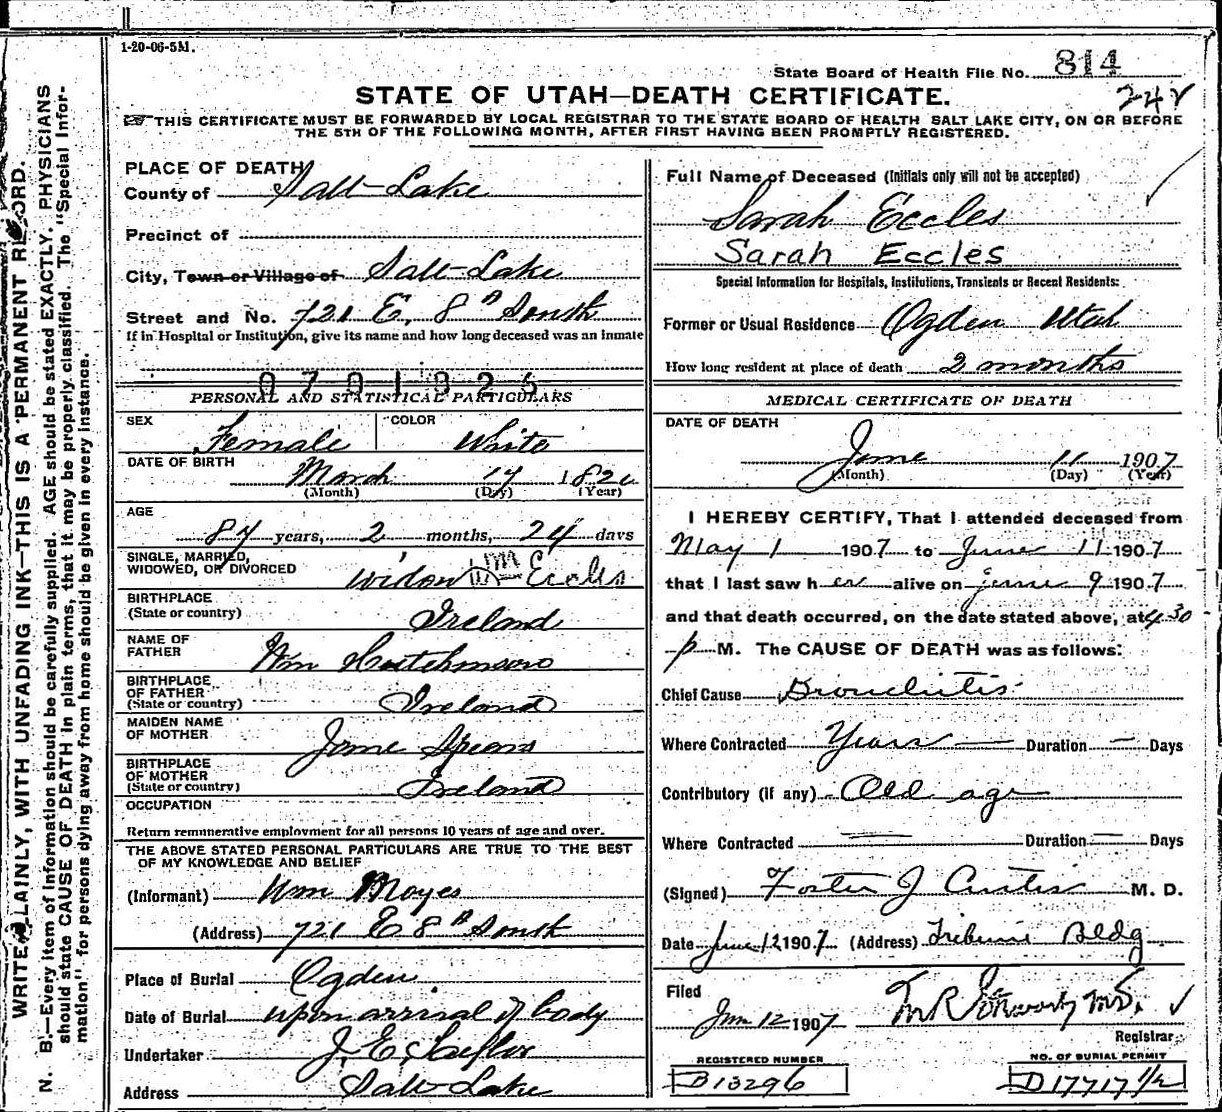 1-20-06-5M.
State Board of Health File No. 814
242
STATE OF UTAH—DEATH CERTIFICATE.
THIS CERTIFICATE MUST BE FORWARDED BY LOCAL REGISTRAR TO THE STATE BOARD OF HEALTH SALT LAKE CITY, ON OR BEFORE
THE 5TH OF THE FOLLOWING MONTH, AFTER FIRST HAVING BEEN PROMPTLY REGISTERED.
WRITE PLAINLY, WITH UNFADING INK—THIS IS A PERMANENT RECORD.
N. B.—Every item of information should be carefully supplied. AGE should be stated EXACTLY. PHYSICIANS
should state CAUSE OF DEATH in plain terms, that it may be properly classified. The "Special Infor-
mation" for persons dying away from home should be given in every instance.
PLACE OF DEATH
County of Salt Lake
Precinct of
City, Town or Village of Salt Lake
Street and No. 721 E. 8th South
If in Hospital or Institution, give its name and how long deceased was an inmate
0701825
PERSONAL AND STATISTICAL PARTICULARS
SEX Female COLOR White
DATE OF BIRTH March 17 182
(Month) (Day) (Year)
AGE
87 years, 2 months, 24 days
SINGLE, MARRIED,
WIDOWED, OR DIVORCED widow Wm Eccles
BIRTHPLACE
(State or country) Ireland
NAME OF
FATHER Wm Hutchinson
BIRTHPLACE
OF FATHER
(State or country) Ireland
MAIDEN NAME
OF MOTHER Jane Spears
BIRTHPLACE
OF MOTHER
(State or country) Ireland
OCCUPATION
Return remunerative employment for all persons 10 years of age and over.
THE ABOVE STATED PERSONAL PARTICULARS ARE TRUE TO THE BEST
OF MY KNOWLEDGE AND BELIEF
(Informant) Wm Moyes
(Address) 721 E 8th South
Place of Burial Ogden
Date of Burial upon arrival of body
Undertaker J. E. Taylor
Address Salt Lake
Full Name of Deceased (Initials only will not be accepted)
Sarah Eccles
Sarah Eccles
Special Information for Hospitals, Institutions, Transients or Recent Residents:
Former or Usual Residence Ogden Utah
How long resident at place of death 2 months
MEDICAL CERTIFICATE OF DEATH
DATE OF DEATH
June 11 1907
(Month) (Day) (Year)
I HEREBY CERTIFY, That I attended deceased from
May 1 1907 to June 11 1907
that I last saw her alive on June 9 1907
and that death occurred, on the date stated above, at 4.30
p M. The CAUSE OF DEATH was as follows:
Chief Cause Bronchitis
Where Contracted Years — Duration — Days
Contributory (if any) Old age
Where Contracted Duration Days
(Signed) Foster J Curtis M. D.
Date June 12 1907 (Address) Tribune Bldg
Filed
Jun 12 1907
Registrar
REGISTERED NUMBER
B13296
NO. OF BURIAL PERMIT
D17717 1/2